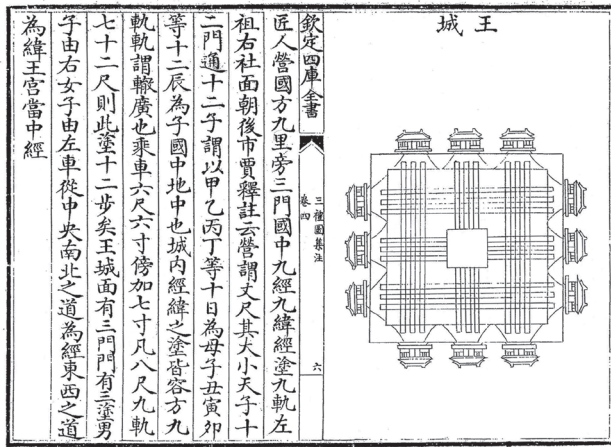 王城
欽定四庫全書
三禮圖集注
卷四
六
匠人營國方九里旁三門國中九經九緯經塗九軌左
祖右社面朝後市賈釋註云營謂丈尺其大小天子十
二門通十二子謂以甲乙丙丁等十日為母子丑寅卯
等十二辰為子國中地中也城内經緯之塗皆容方九
軌軌謂轍廣也乘車六尺六寸傍加七寸凡八尺九軌
七十二尺則此塗十二步矣王城面有三門門有三塗男
子由右女子由左車從中央南北之道為經東西之道
為緯王宫當中經